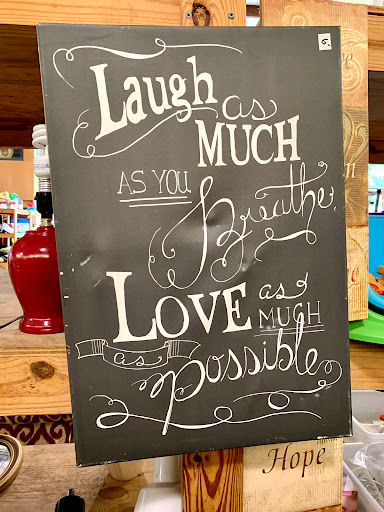 Laugh as
MUCH
AS YOU
Breathe,
LOVE as
MUCH
as
possible
Hope